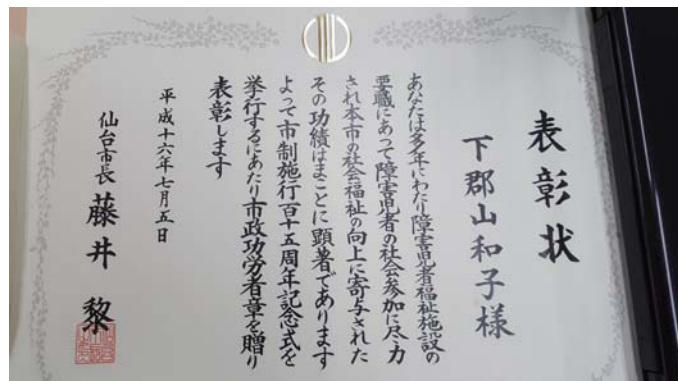 表彰状
下郡山和子様
あなたは多年にわたり障害児者福祉施設の
要職にあって障害児者の社会参加に尽力
され本市の社会福祉の向上に寄与された
その功績はまことに顕著であります
よって市制施行百十五周年記念式を
挙行するにあたり市政功労者章を贈り
表彰します
平成十六年七月五日
仙台市長 藤井 黎